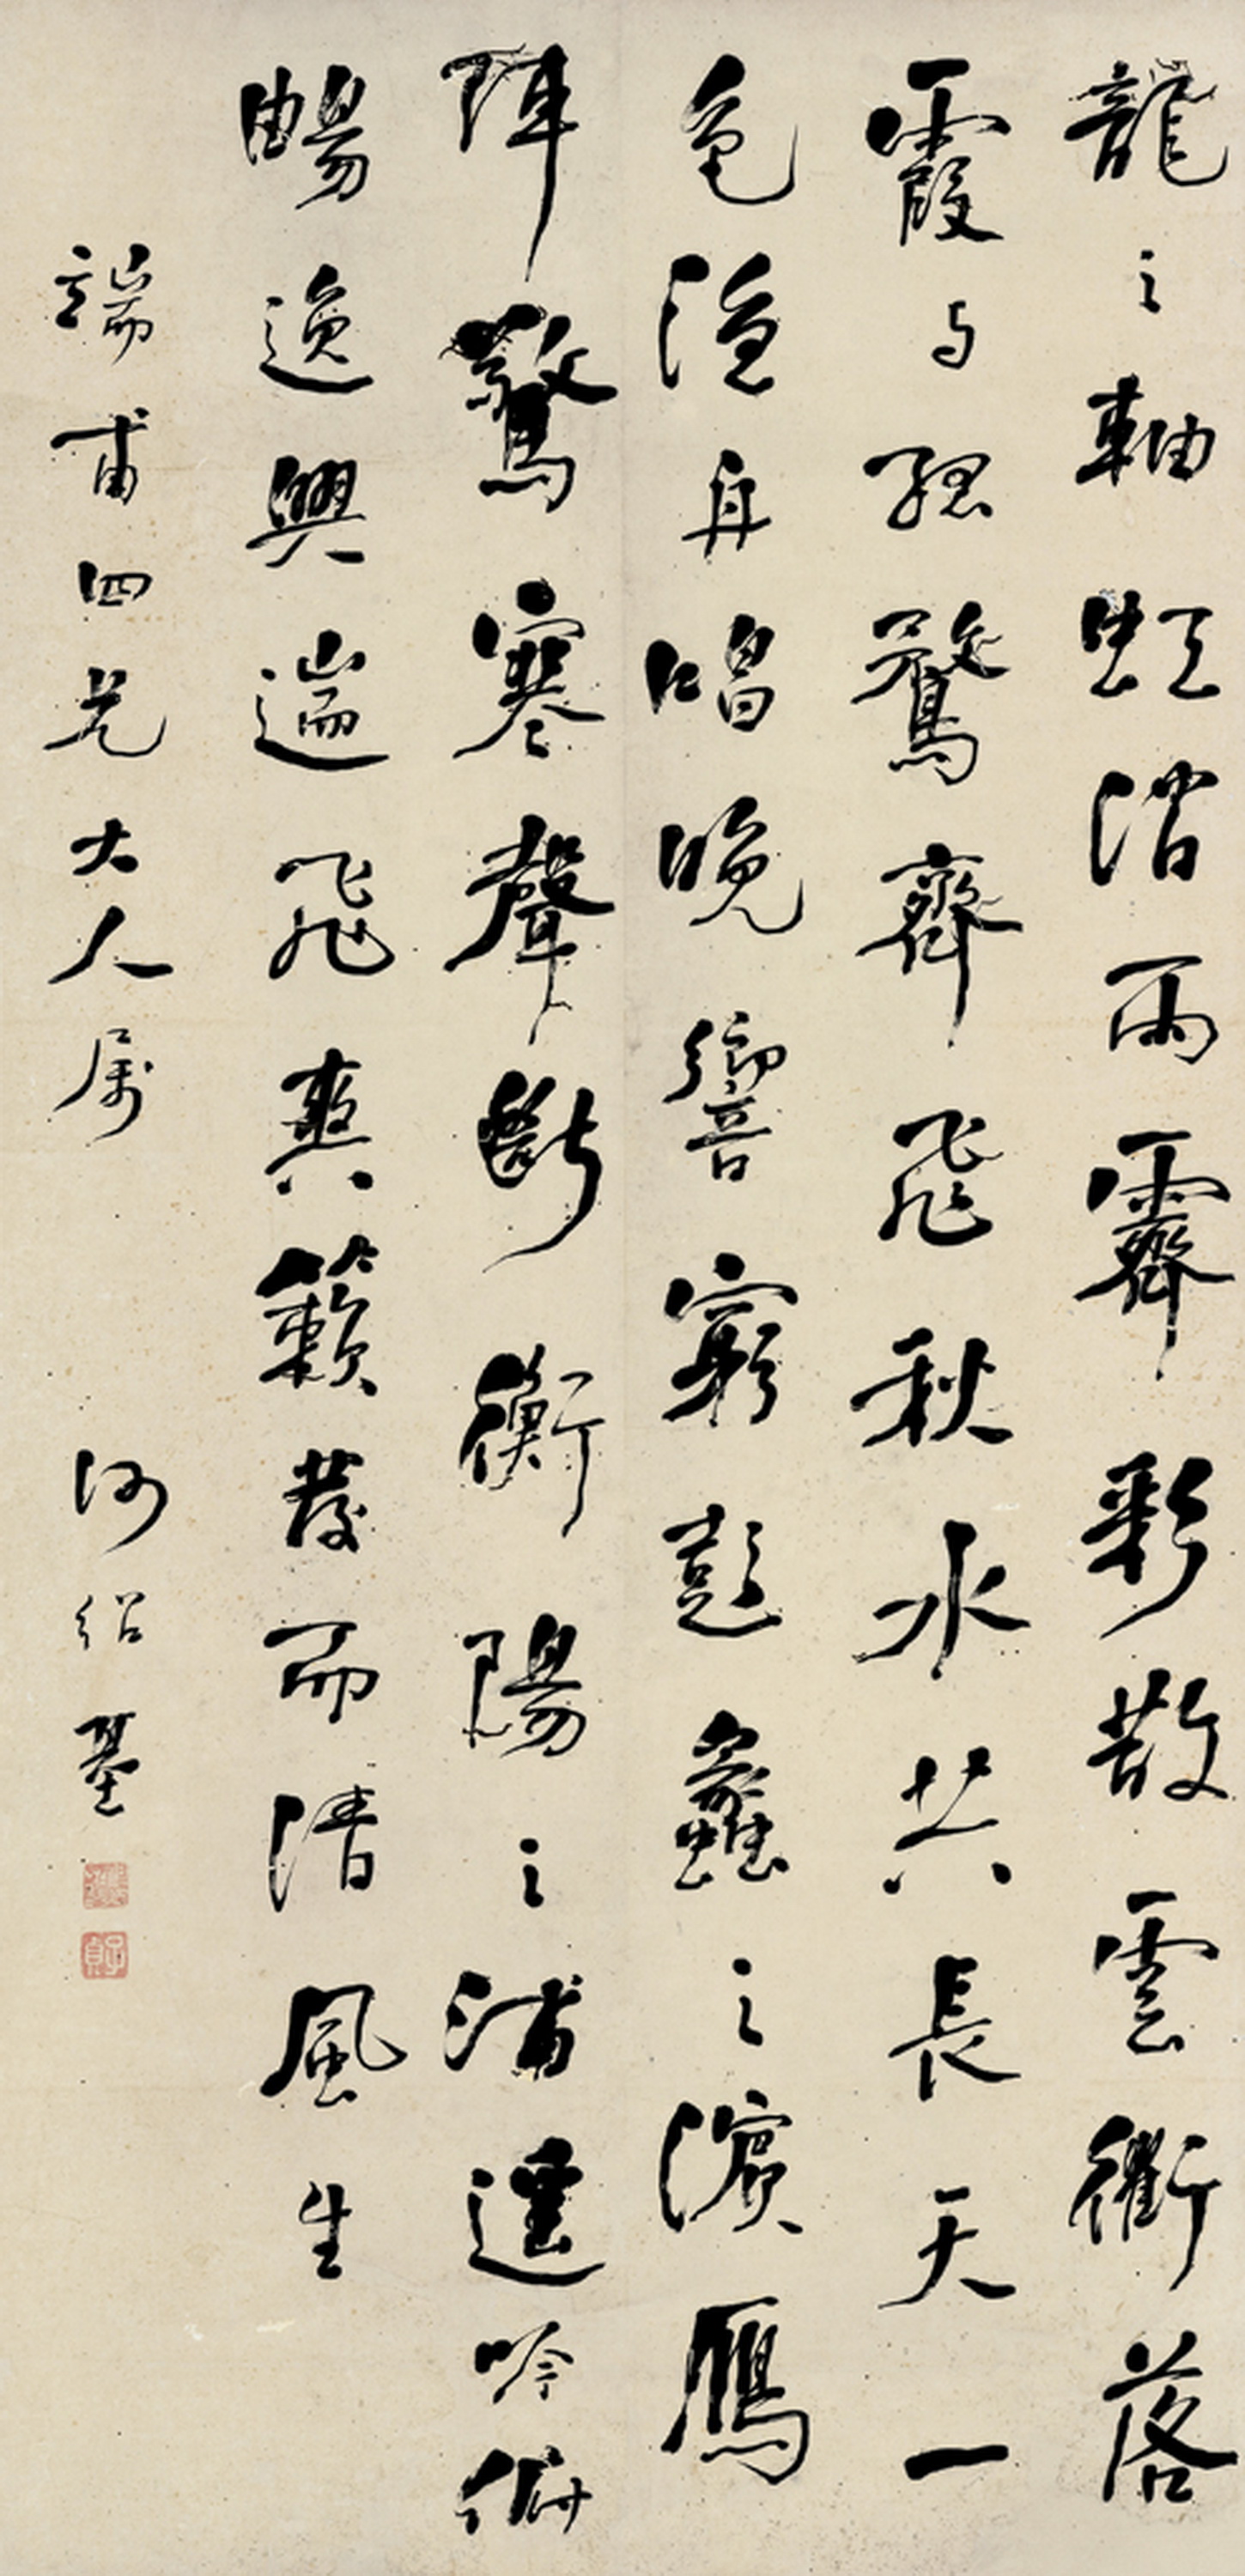 龍之軸虹消雨霽彩散雲衢落
霞与孤鶩齊飛秋水共長天一
色漁舟唱晚響窮彭蠡之濱鴈
陣驚寒聲斷衡陽之浦遥吟俯
暢逸興遄飛爽籟發而清風生
端甫四兄大人属 何紹基
子貞